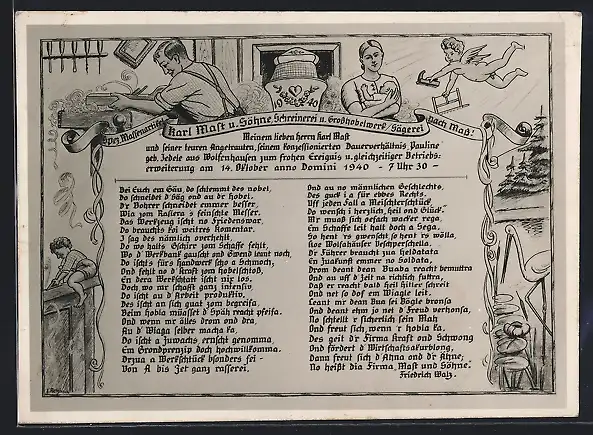 Spez. Massenartikel
Karl Mast u. Söhne, Schreinerei u. Großhobelwerk/Sägerei
nach Maß!
1940
Meinem lieben Herrn Karl Mast
und seiner teuren Angetrauten, seinem konzessionierten Dauerverhältnis „Pauline“
geb. Jedele aus Wolfenhausen zum frohen Ereignis u. gleichzeitiger Betriebs-
erweiterung am 14. Oktober anno Domini 1940 - 7 Uhr 30 -
Bei Euch em Gäu, do schlemmt des nobel,
Do schneidet d'Säg ond au dr Hobel.
Dr Bohrer schneidet emmer besser,
Wia zom Rasiera's feinschte Messer.
Das Werkzeug ischt no Friedenswar,
Do brauchts koi weitres Komentar.
I sag des nämlich overhehlt,
Do wo halts Gschirr zom Schaffe fehlt,
Wo d'Werkbank gauscht ond Gwend ieant noch,
Do ischt's fürs Handwerk scho a Schmoch,
Ond fehlt no d'Kraft zom Hobelschtoß,
En dera Werkschatt ischt nix los.
Doch wo mr schafft ganz intensiv,
Do ischt au d'Arbeit produktiv,
Des ischt an sich guat zom begreifa.
Beim Hobla müasset d'Spän reacht pfeifa.
Ond wenn mr älles drom ond dra,
Au d'Wiaga selber macha ka,
Do ischt a Zuwachs, ernscht genomma,
Em Grondprenzip doch hochwillkomma.
Drzua a Werkschtück bsonders fei -
Von A bis Zet ganz rasserei.
Ond au no männlichen Geschlechts,
Des guck i a für ebbes Rechts.
Uff jeden Fall a Meischterschtück,
Do wensch i herzlich, Heil ond Glück.
Mr muaß sich oefach wacker rega,
Em Schaffe leit halt doch a Sega.
So hent 'rs gwenscht, so hent 'rs wölla,
Koe Wolfshäuser Beschperschella.
Dr Führer braucht zua Heldatata
En Zuakunft emmer no Soldata,
Drom deant dean Buaba reacht bemuttra
Ond au uff d'Zeit na richtig futtra,
Daß er reacht bald Heil Hitler schreit
Ond net so dof em Wiagle leit.
Leant mr dean Bua sei Bägle bronsa
Ond deant ehm jo net d'Freud verhonsa,
No schtellt 'r sicherlich sein Mah
Ond freut sich, wenn 'r hobla ka.
Des geit d'r Firma Kraft ond Schwong
Ond fördert d'Wirtschaftsakurblong,
Dann freut sich d'Ahna ond d'r Ähne;
No heißt dia Firma „Mast und Söhne.“
Friedrich Walz.